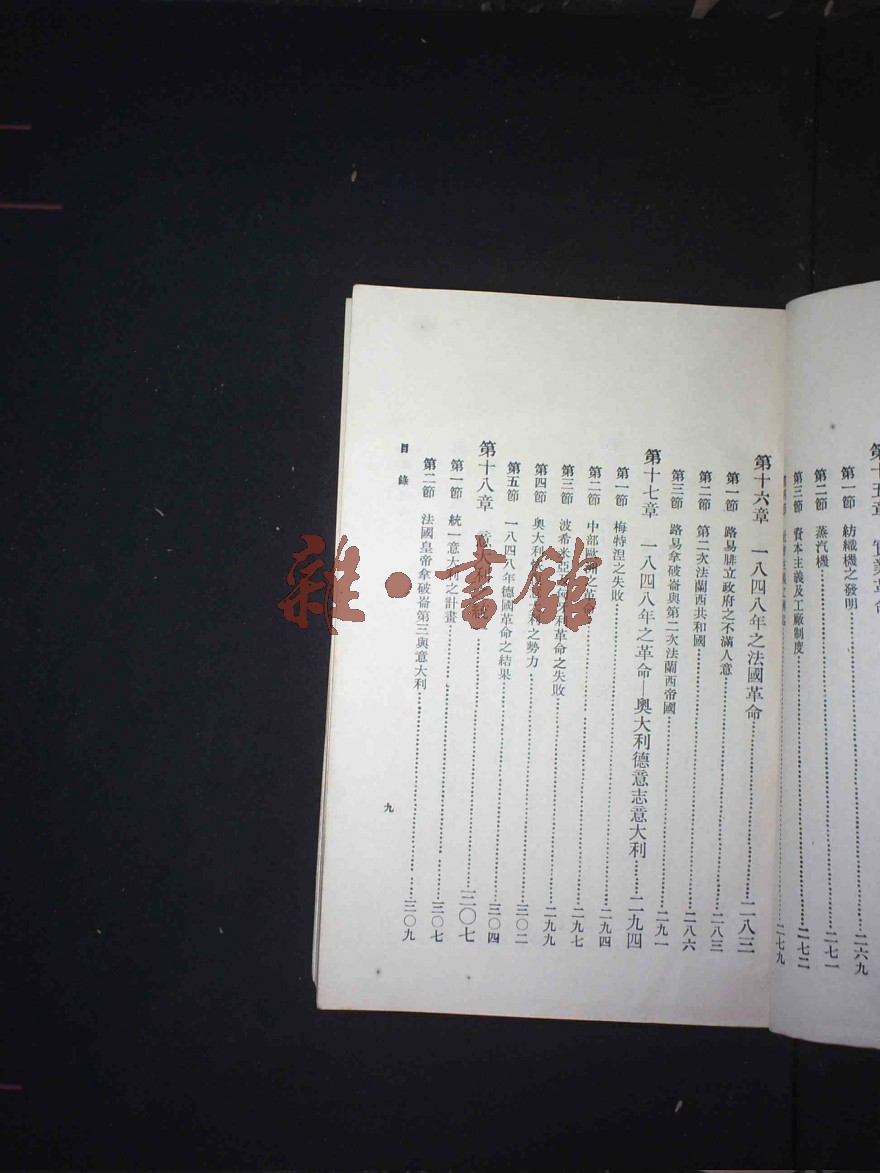 第十五章 實業革命
第一節 紡織機之發明 二六九
第二節 蒸汽機 二七一
第三節 資本主義及工廠制度 二七二
二七九
第十六章 一八四八年之法國革命 二八三
第一節 路易腓立政府之不滿人意 二八三
第二節 第二次法蘭西共和國 二八六
第三節 路易拿破崙與第二次法蘭西帝國 二九一
第十七章 一八四八年之革命—奧大利德意志意大利 二九四
第一節 梅特涅之失敗 二九四
第二節 中部歐洲之革 二九七
第三節 波希米亞 利革命之失敗 二九九
第四節 奧大利 利之勢力 三〇二
第五節 一八四八年德國革命之結果 三〇四
第十八章 意大利 三〇七
第一節 統一意大利之計畫 三〇七
第二節 法國皇帝拿破崙第三與意大利 三〇九
目錄
九
雜·書館